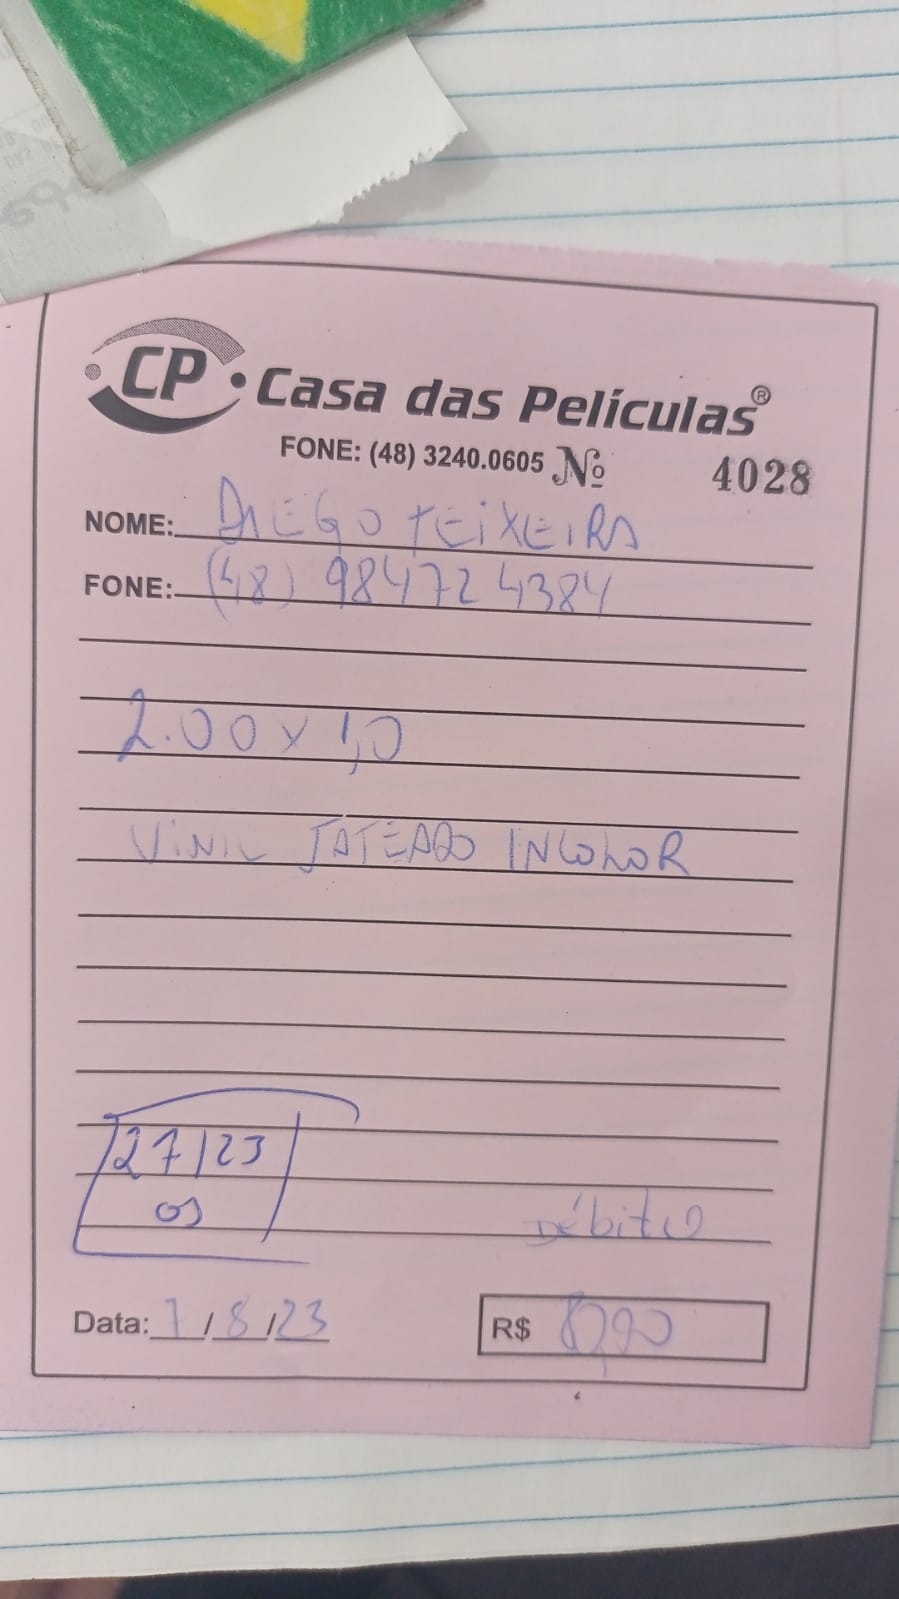 CP • Casa das Películas®
FONE: (48) 3240.0605 Nº 4028
NOME: DIEGO TEIXEIRA
FONE: (48) 984724384
2.00 x 1,0
VINIL JATEADO INCOLOR
27/23
os
Débito
Data: 7/8/23 R$